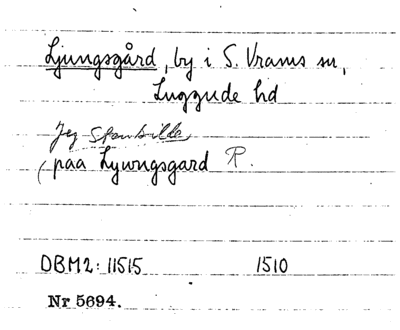 Ljungsgård, by i S. Vrams sn,
Luggude hd
Jeg Sten bille
(paa Lywngsgard R.
DBM2: 11515 1510
Nr 5694.